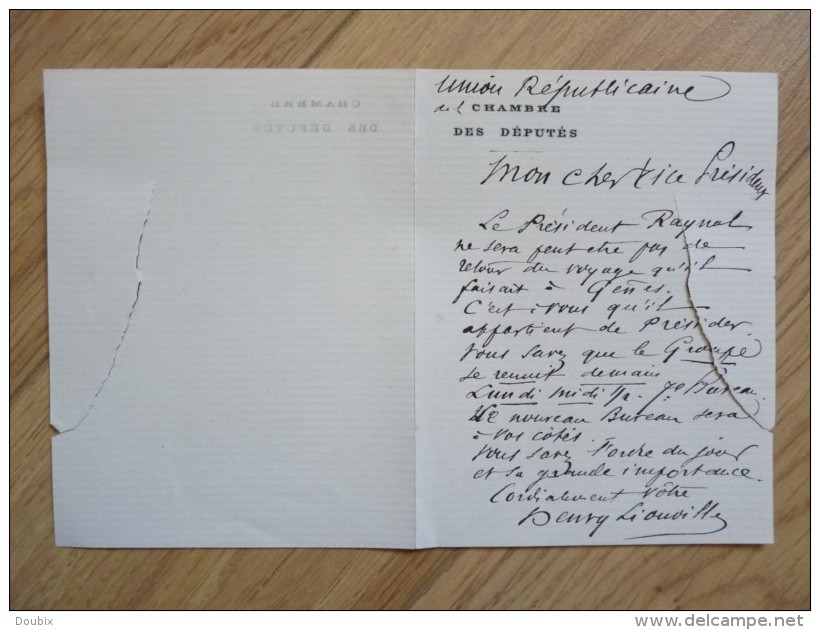 Union Républicaine
de la CHAMBRE
DES DÉPUTÉS
Mon cher Vice Président
Le Président Raynal
ne sera peut être pas de
retour du voyage qu'il
faisait à Gênes.
C'est à vous qu'il
appartient de Présider.
Vous savez que le Groupe
se reunit demain
Lundi midi 1/2 7e Bureau.
Le nouveau Bureau sera
à vos côtés.
Vous savez l'ordre du jour
et sa grande importance.
Cordialement vôtre
Henry Liouville
CHAMBRE
DES DÉPUTÉS
Doubix
delcampe.net